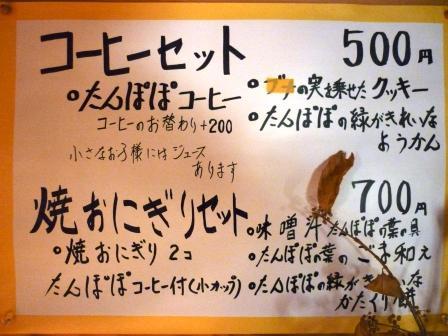 コーヒーセット 500円
○たんぽぽコーヒー
コーヒーのお替わり+200
小さなお子様にはジュース
あります
○ブナの実を乗せたクッキー
○たんぽぽの緑がきれいな
ようかん
焼おにぎりセット 700円
○焼おにぎり 2コ
たんぽぽコーヒー付(小カップ)
○味噌汁 たんぽぽの葉の具
○たんぽぽの葉のごま和え
○たんぽぽの緑がきれいな
かたくり餅